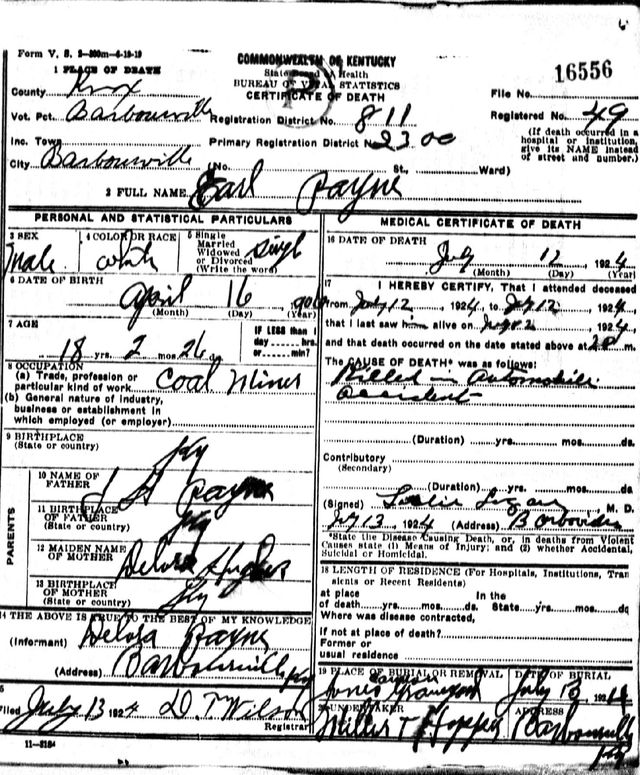 Form V. S. 2-300m-4-19-19
1 PLACE OF DEATH
COMMONWEALTH OF KENTUCKY
State Board of Health
BUREAU OF VITAL STATISTICS
CERTIFICATE OF DEATH
16556
County Knox
File No.
Vot. Pct. Barbourville
Registration District No. 811
Registered No. 49
Inc. Town
Primary Registration District No. 2300
(If death occurred in a
hospital or institution,
give its NAME instead
of street and number.)
City Barbourville (No. St., Ward)
2 FULL NAME Earl Payne
PERSONAL AND STATISTICAL PARTICULARS
3 SEX
Male
4 COLOR OR RACE
white
5 Single
Married
Widowed
or Divorced
(Write the word)
Singl
6 DATE OF BIRTH
April 16 1906
(Month) (Day) (Year)
7 AGE
18 yrs. 2 mos. 26 ds.
IF LESS than 1
day ------ hrs.
or ------ min?
8 OCCUPATION
(a) Trade, profession or
particular kind of work Coal Miner
(b) General nature of industry,
business or establishment in
which employed (or employer)
9 BIRTHPLACE
(State or country)
Ky
PARENTS
10 NAME OF
FATHER
J H Payne
11 BIRTHPLACE
OF FATHER
(State or country)
Ky
12 MAIDEN NAME
OF MOTHER
Hughes
13 BIRTHPLACE
OF MOTHER
(State or country)
Ky
14 THE ABOVE IS TRUE TO THE BEST OF MY KNOWLEDGE
(Informant) Payne
(Address) Barbourville Ky
15
Filed July 13 1924 D. T. Wilson
Registrar
11-3184
MEDICAL CERTIFICATE OF DEATH
16 DATE OF DEATH
July 12, 1924
(Month) (Day) (Year)
17 I HEREBY CERTIFY, That I attended deceased
from July 12, 1924, to July 12, 1924
that I last saw him alive on July 12, 1924
and that death occurred on the date stated above at m.
The CAUSE OF DEATH* was as follows:
Killed in Automobile
accident
(Duration) yrs. mos. ds.
Contributory
(Secondary)
(Duration) yrs. mos. ds.
(Signed) Leslie Logan, M. D.
July 13, 1924 (Address) Barbourville
*State the Disease Causing Death, or, in deaths from Violent
Causes state (1) Means of Injury; and (2) whether Accidental,
Suicidal or Homicidal.
18 LENGTH OF RESIDENCE (For Hospitals, Institutions, Tran
sients or Recent Residents)
at place
of death yrs. mos. ds.
In the
State yrs. mos. ds
Where was disease contracted,
if not at place of death?
Former or
usual residence
19 PLACE OF BURIAL OR REMOVAL
DATE OF BURIAL
July 13
20 UNDERTAKER
Miller T Hopper
ADDRESS
Barbourville
Ky